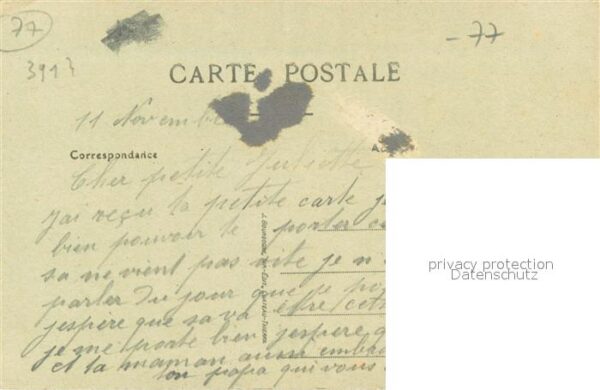 77
3913
-77
CARTE POSTALE
11 Novembre
Correspondance
Cher petite Juliette
J'ai reçu ta petite carte je
bien pouvoir te porter
sa ne vient pas vite je n
parler du jour que je
jespère que sa va être
je me porte bien jespère q
et la maman aussi embra
ton papa qui vous
privacy protection
Datenschutz